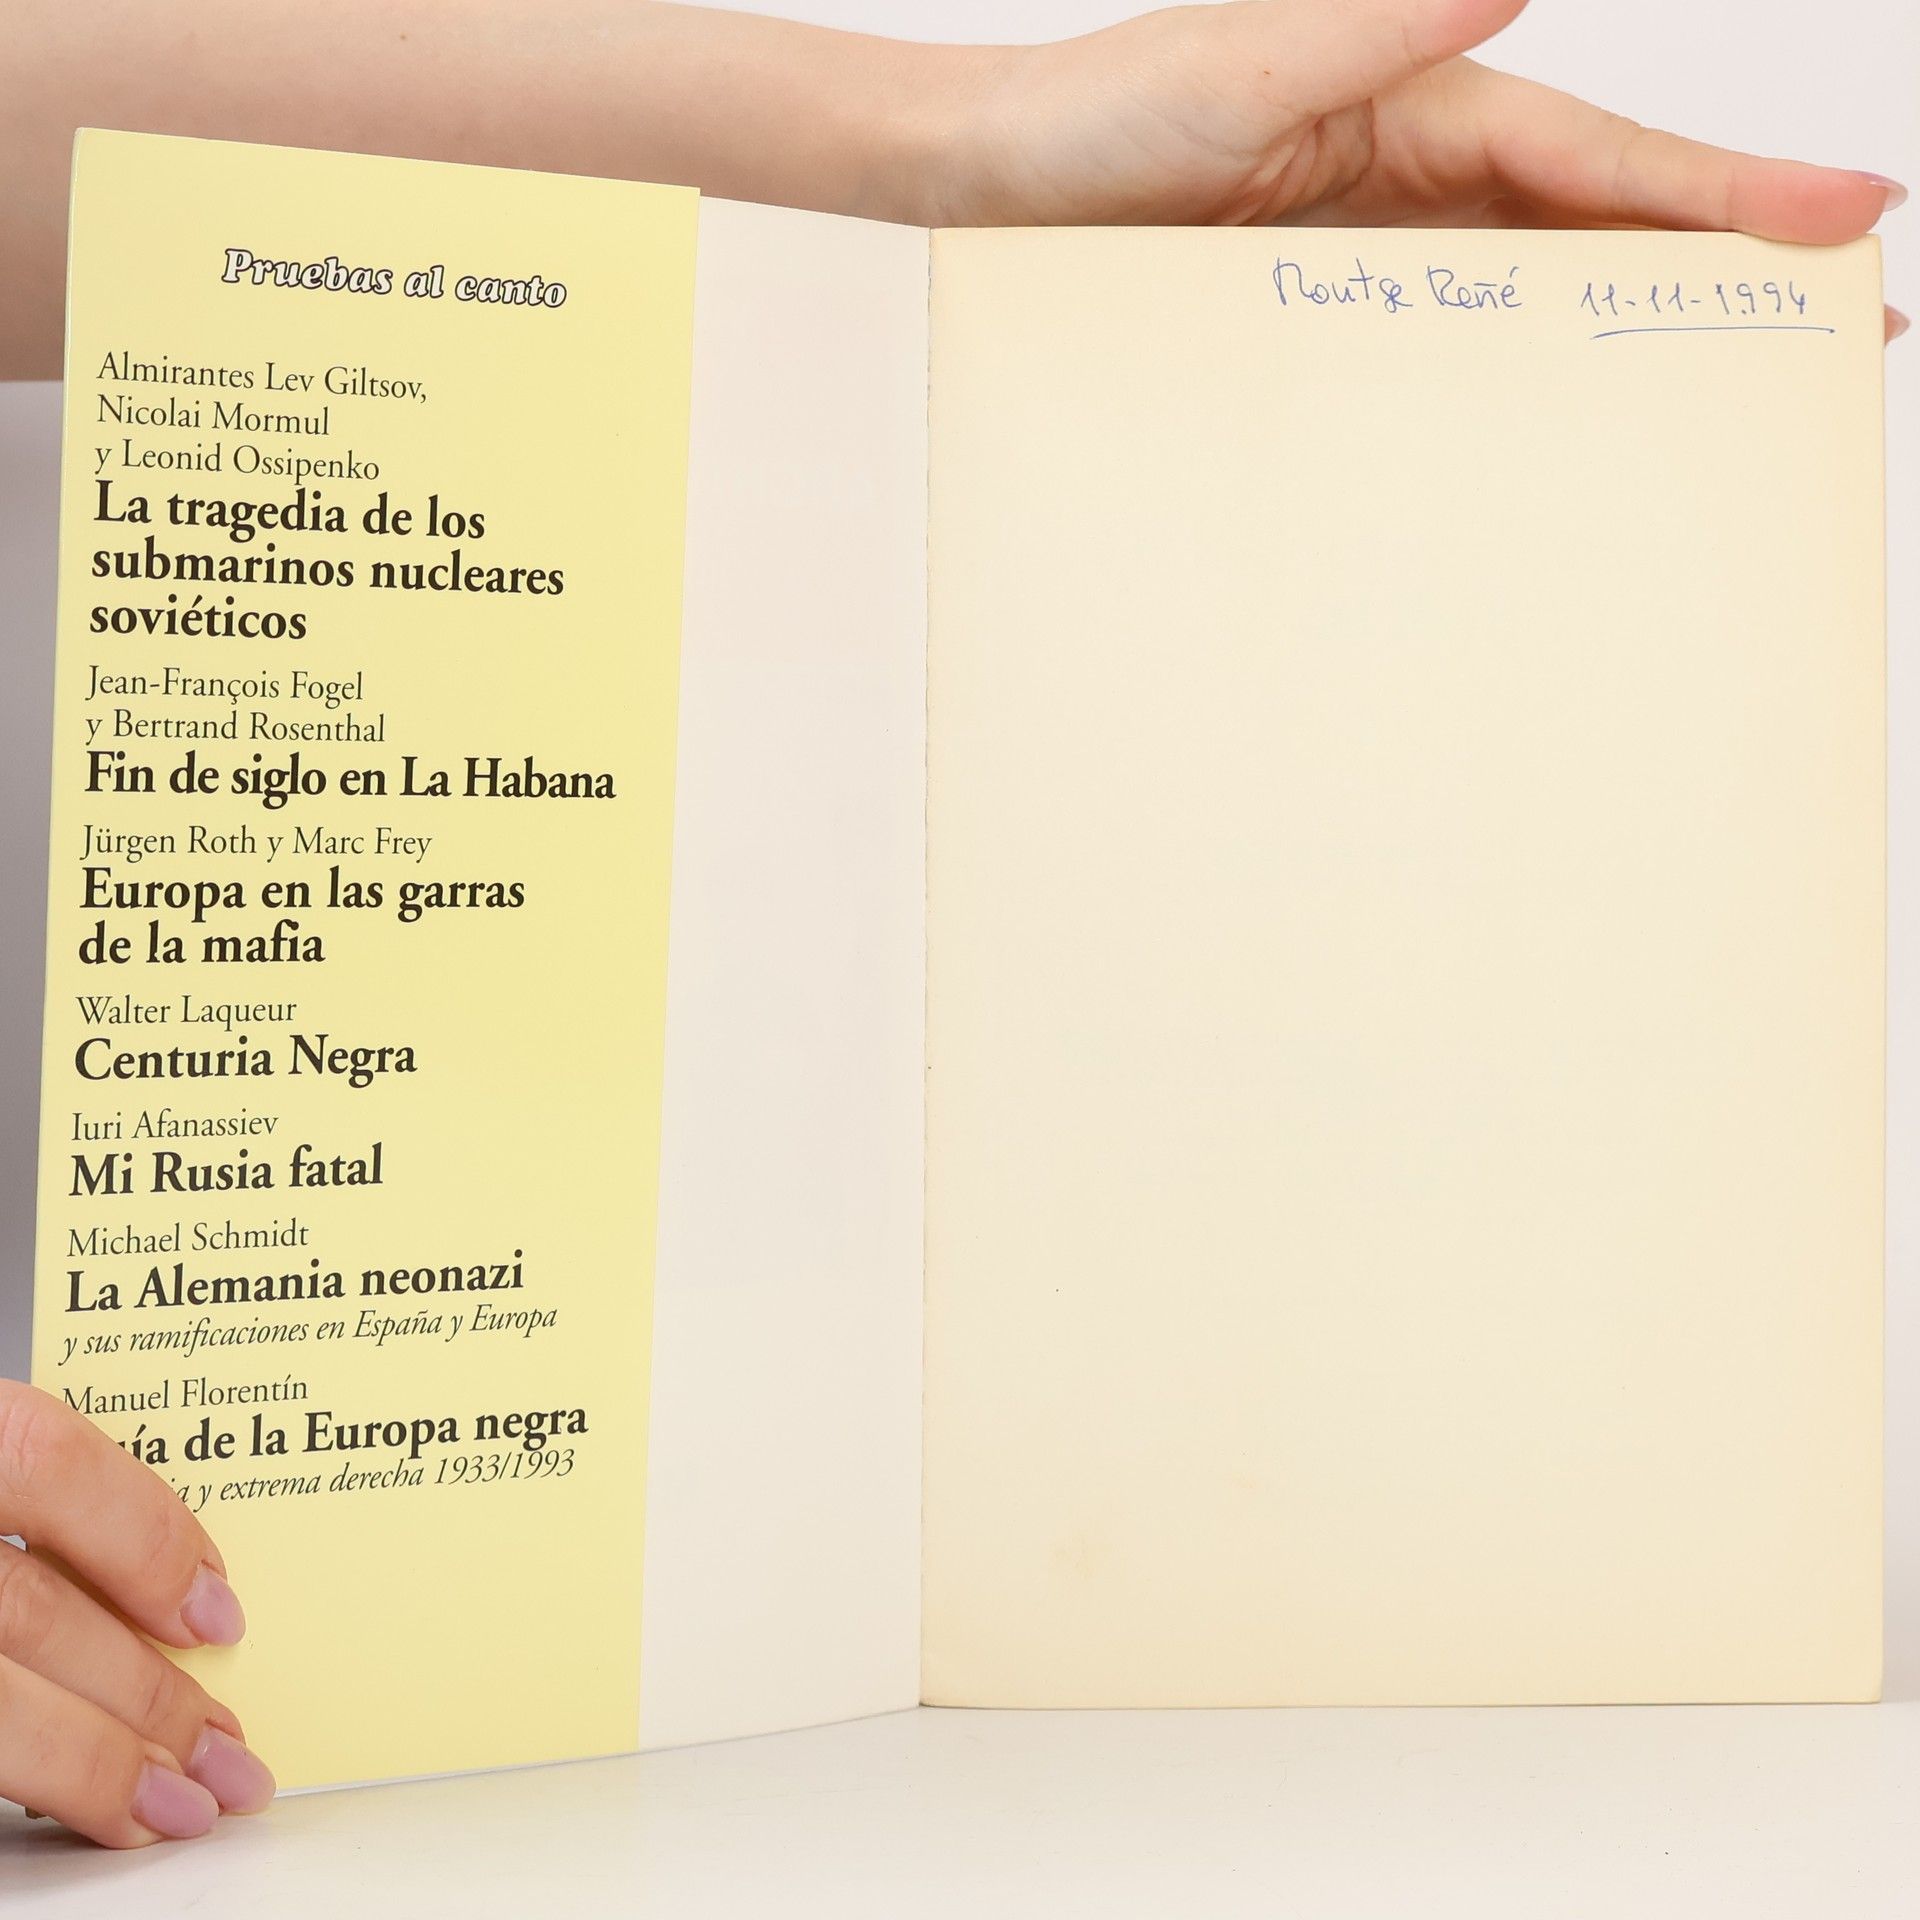 Pruebas al canto
Almirantes Lev Giltsov,
Nicolai Mormul
y Leonid Ossipenko
La tragedia de los
submarinos nucleares
soviéticos
Jean-François Fogel
y Bertrand Rosenthal
Fin de siglo en La Habana
Jürgen Roth y Marc Frey
Europa en las garras
de la mafia
Walter Laqueur
Centuria Negra
Iuri Afanassiev
Mi Rusia fatal
Michael Schmidt
La Alemania neonazi
y sus ramificaciones en España y Europa
Manuel Florentín
de la Europa negra
y extrema derecha 1933/1993
Montse Reñé 11-11-1.994